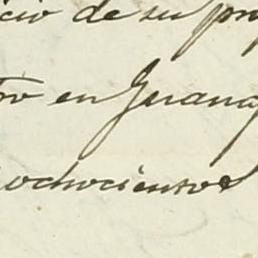 cio de su pro
ro en Guana
ochocientos